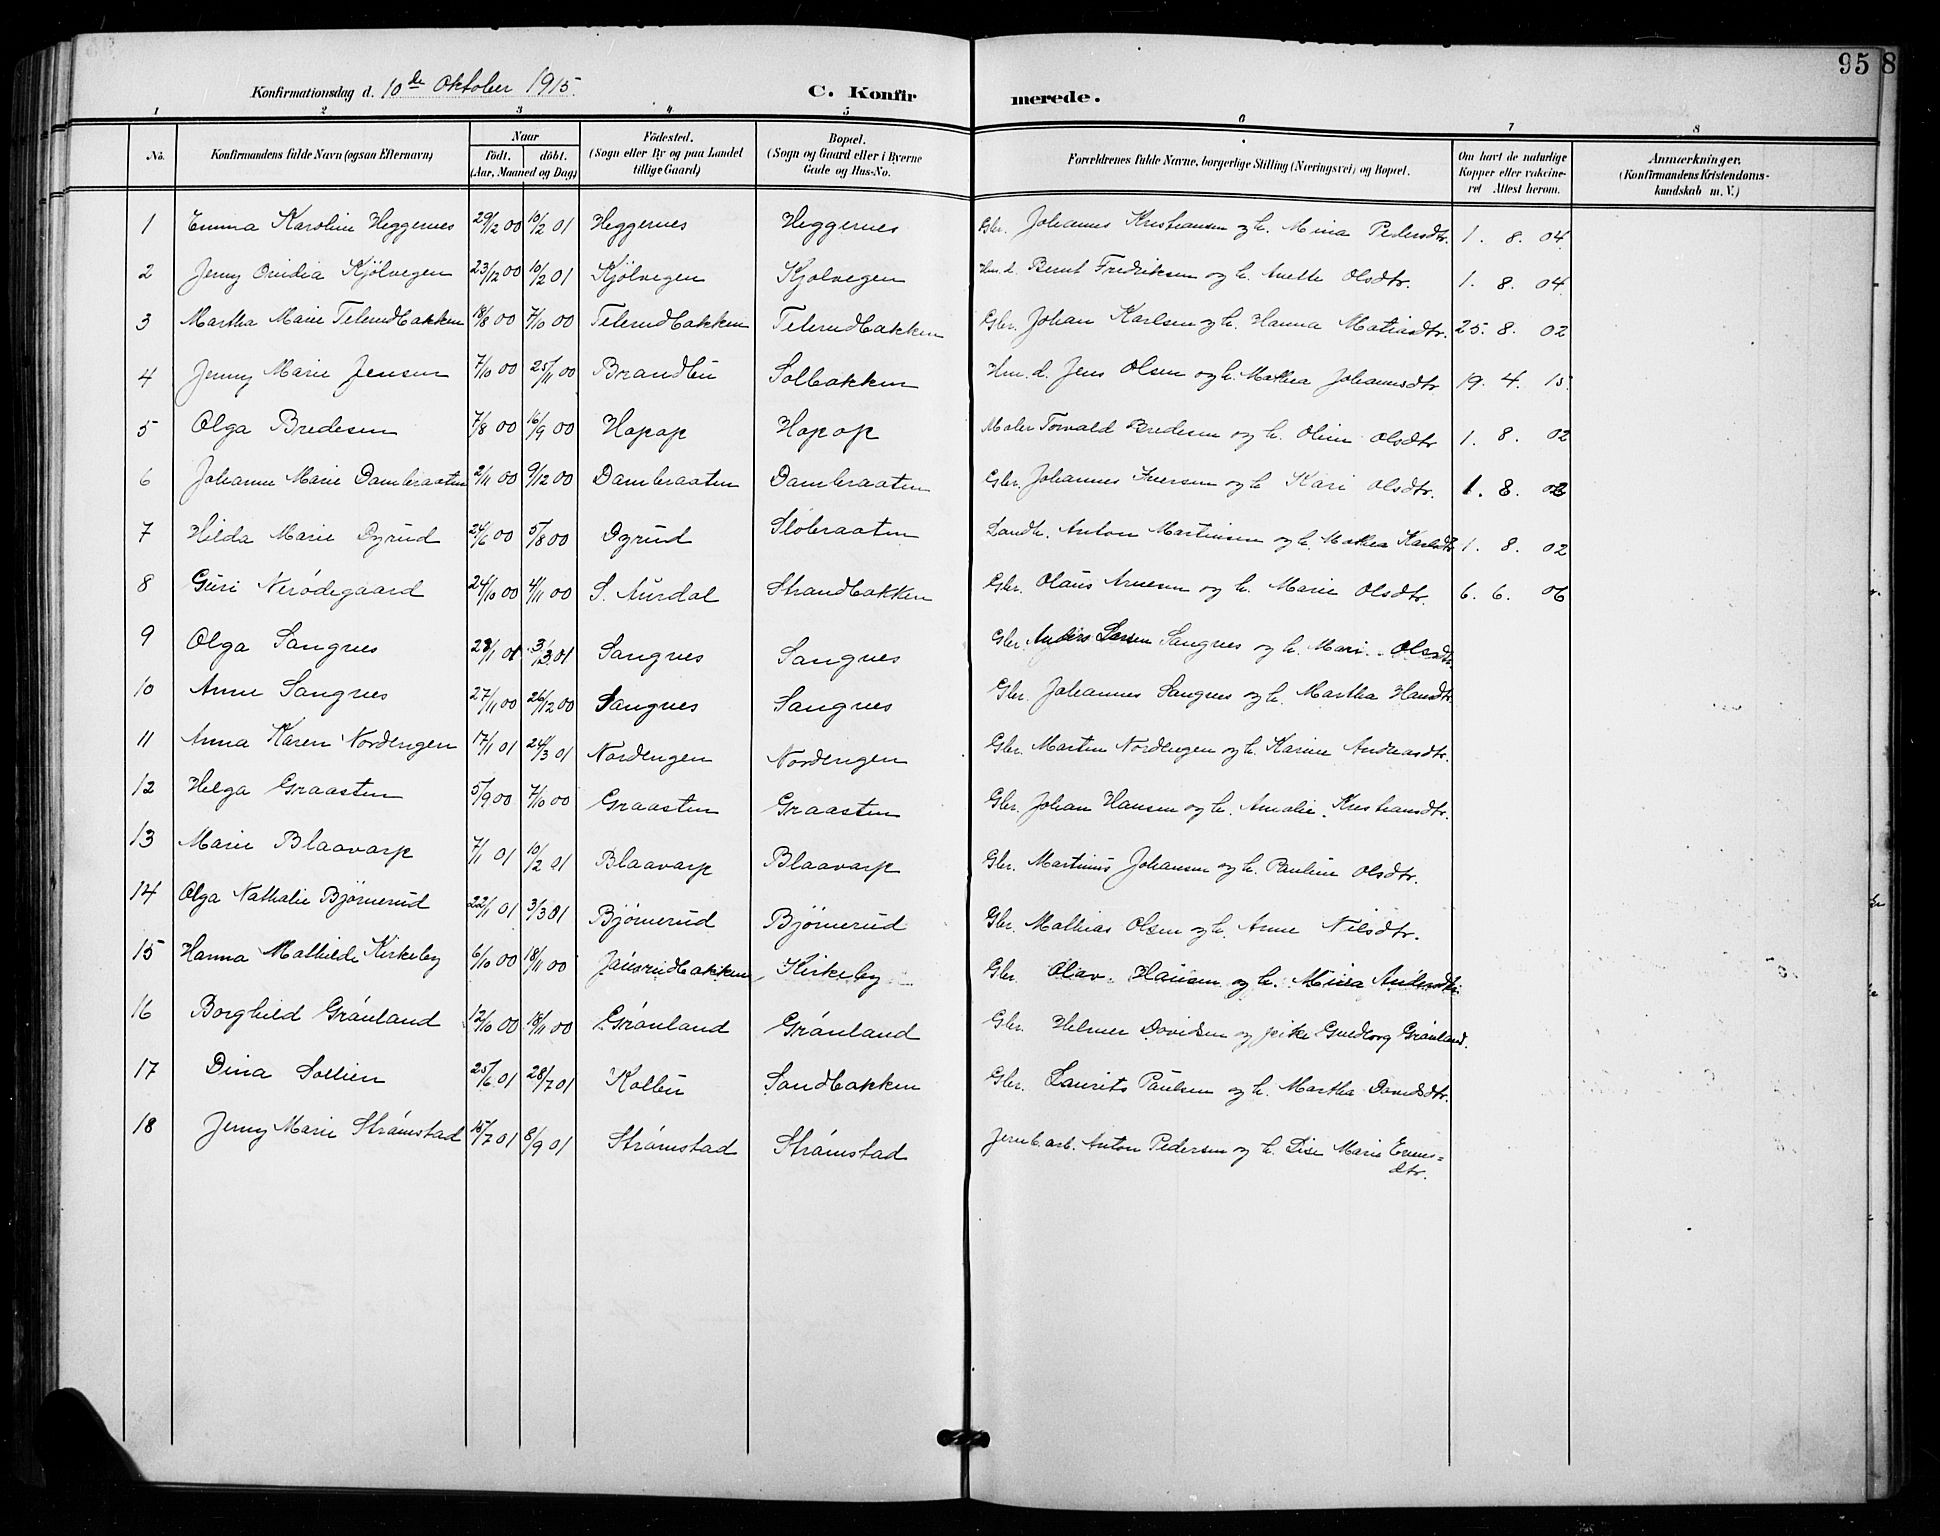 95 8
Konfirmationsdag d. 10de Oktober 1915. C. Konfir merede.
1 2 3 4 5 6 7 8
No. Konfirmandens fulde Navn (ogsaa Efternavn) Naar født. døbt. (Aar, Maaned og Dag) Fødested. (Sogn eller By og paa Landet tillige Gaard) Bopæl. (Sogn og Gaard eller i Byerne Gade og Hus-No. Forældrenes fulde Navne, borgerlige Stilling (Næringsvei) og Bopæl. Om havt de naturlige Kopper eller vakcineret Attest herom. Anmærkninger. (Konfirmandens Kristendomskundskab m. V.)
1 Emma Karoline Heggernes 29/12 00 10/2 01 Heggernes Heggernes Gbr. Johannes Kristiansen og h. Mina Pedersdtr. 1. 8. 04.
2 Jenny Ovidia Kjölvegen 23/12 00 10/2 01 Kjölvegen Kjølvegen Hm. d. Bernt Fredriksen og h. Anette Olsdtr. 1. 8. 04.
3 Martha Marie Telerudbakken 18/8 00 7/10 00 Telerudbakken Telerudbakken Gbr. Johan Karlsen og h. Hanna Matiasdtr. 25. 8. 02
4 Jenny Marie Jensen 7/10 00 25/11 00 Brandbu Solbakken Hm. d. Jens Olsen og h. Mathea Johannsdtr. 19. 4. 15.
5 Olga Bredesen 7/8 00 16/9 00 Hopop Hopop Maler Torvald Bredesen og h. Oline Olsdtr 1. 8. 02
6 Johanne Marie Dambraaten 2/11 00 9/12 00 Dambraaten Dambraaten Gbr. Johannes Iversen og h. Kari Olsdtr. 1. 8. 02
7 Hilda Marie Dyrud 24/6 00 5/8 00 Dyrud Slobraaten Landh. Anton Martinsen og h. Mathea Karlsdtr 1. 8. 02
8 Guri Nerödegaard 24/10 00 4/11 00 S. Aurdal Strandbakken Gbr. Olaus Arnesen og h. Marie Olsdtr. 6. 6. 06
9 Olga Sangnes 28/1 01 3/3 01 Sangnes Sangnes Gbr. Anders Larsen Sangnes og h. Mari Olsdtr
10 Anne Sangnes 27/11 00 26/12 00 Sangnes Sangnes Gbr. Johannes Sangnes og h. Martha Hansdtr.
11 Anna Karen Nordengen 17/1 01 24/3 01 Nordengen Nordengen Gbr. Martin Nordengen og h. Karine Andreasdtr.
12 Helga Graasten 5/9 00 7/10 00 Graasten Graasten Gbr. Johan Hansen og h. Amalie Kristiansdtr.
13 Marie Blaavarp 7/1 01 10/2 01 Blaavarp Blaavarp Gbr. Martinus Johansen og h. Pauline Olsdtr.
14 Olga Nathalie Bjørnerud 22/1 01 3/3 01 Bjørnerud Bjørnerud Gbr. Mathias Olsen og h. Anne Nilsdtr.
15 Hanna Mathilde Kirkeby 6/10 00 18/11 00 Jausrudbakken Kirkeby Gbr. Olav Hansen og h. Mina Andersdtr.
16 Borghild Grønland 12/10 00 18/11 00 Grønland Grønland Gbr. Helmer Davidsen og pike Guldborg Grønland.
17 Dina Sollien 25/6 01 28/7 01 Kolbu Sandbakken Gbr. Laurits Paulsen og h. Martha Davidsdtr.
18 Jenny Marie Strømstad 15/7 01 8/9 01 Strømstad Strømstad Jernb.arb. Anton Pedersen og h. Lise Marie Evens=
dtr.